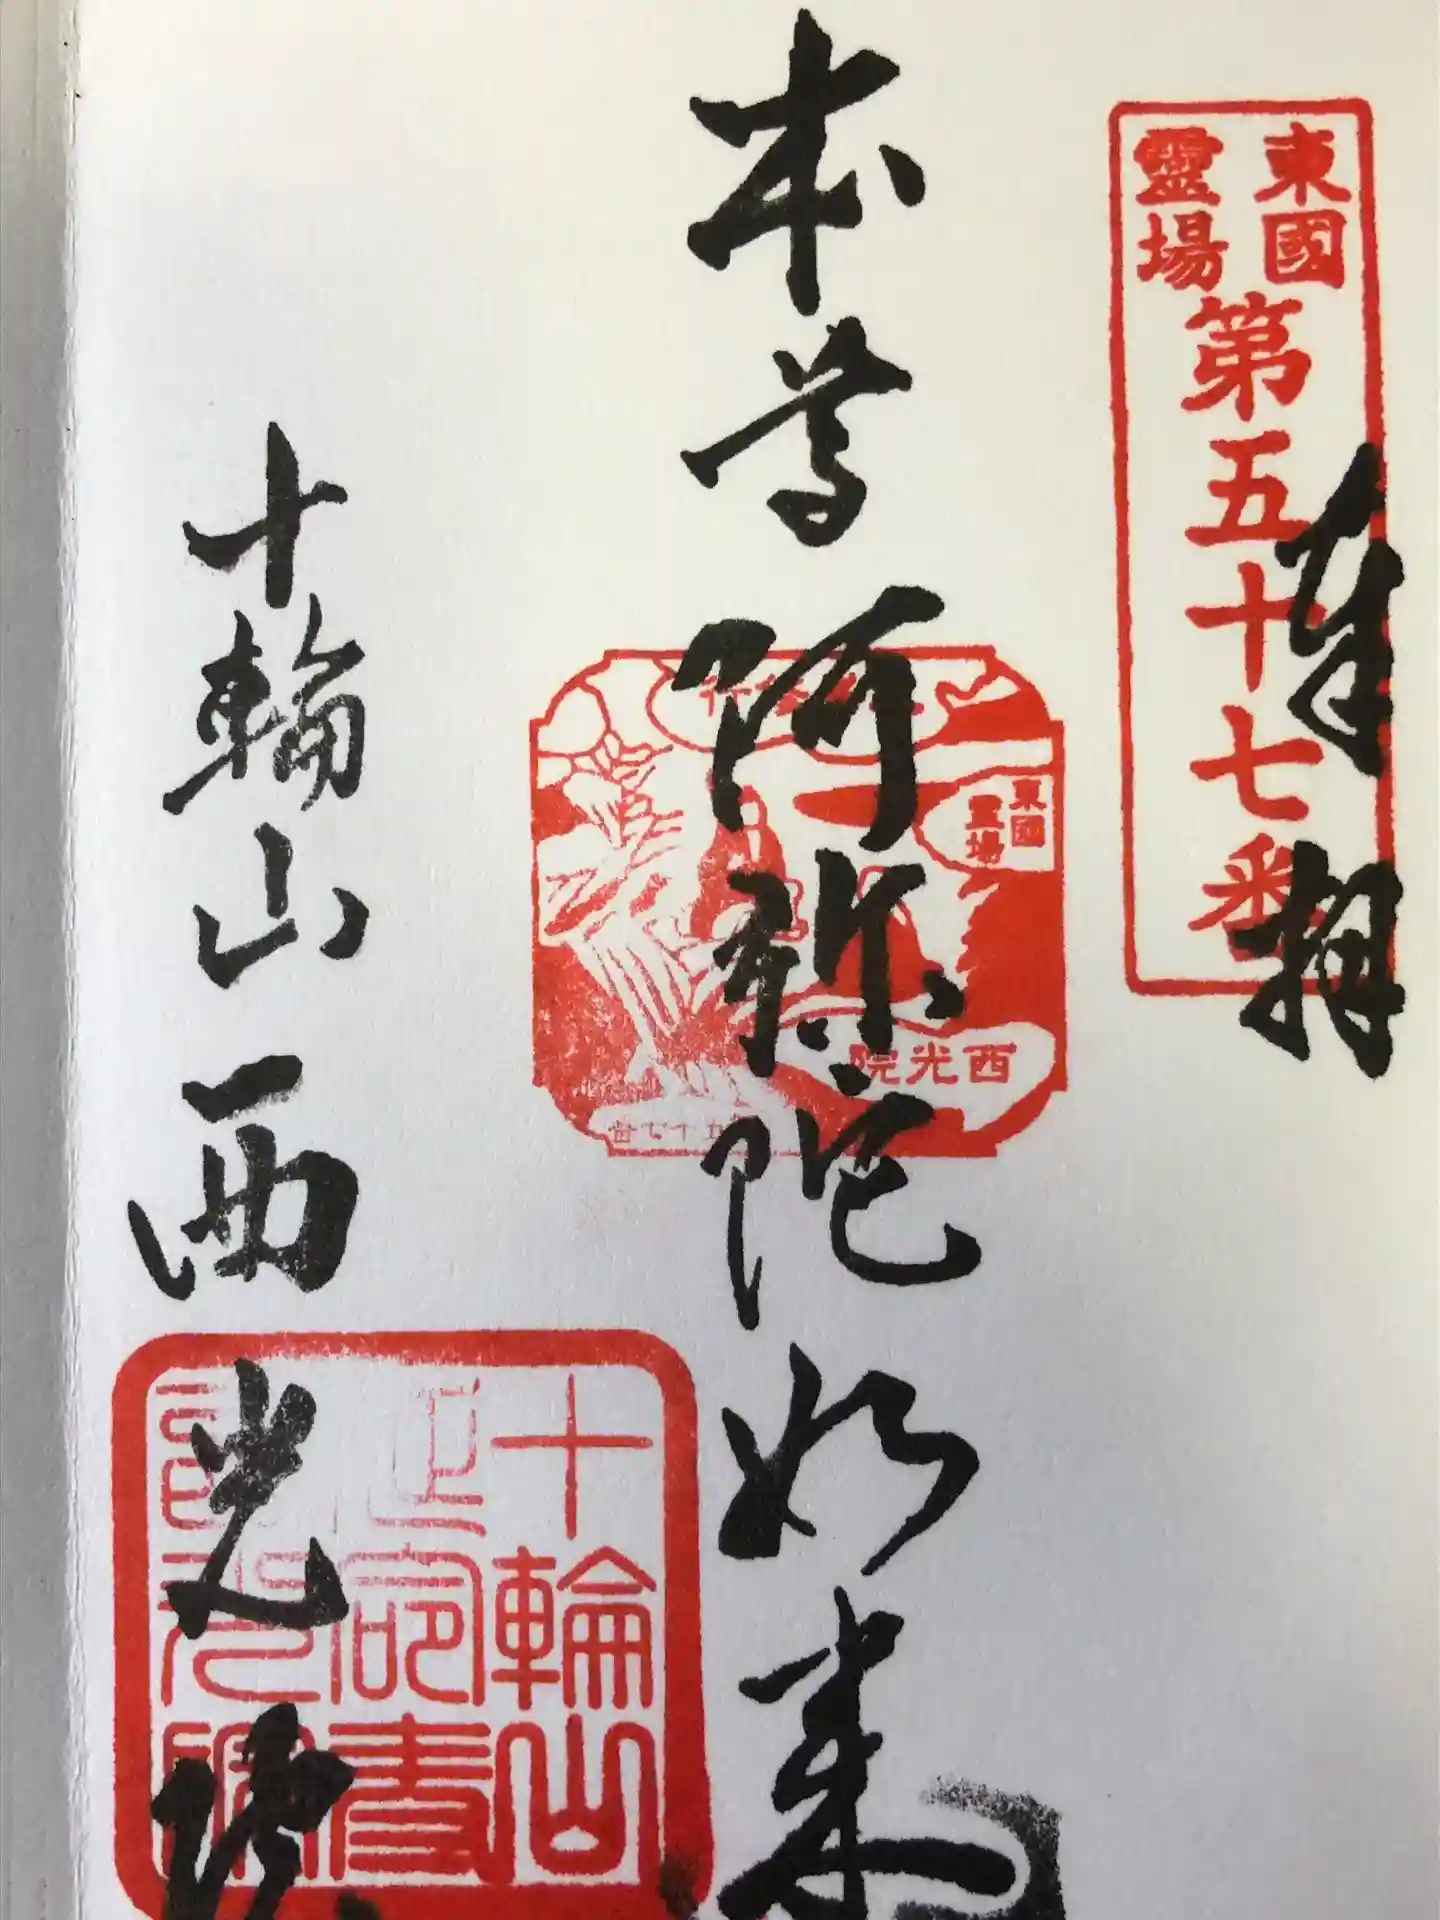 東國
靈場
第五十七番
奉拝
本尊 阿弥陀如来
東國
霊場
西光院
十輪山 西光院
十輪山